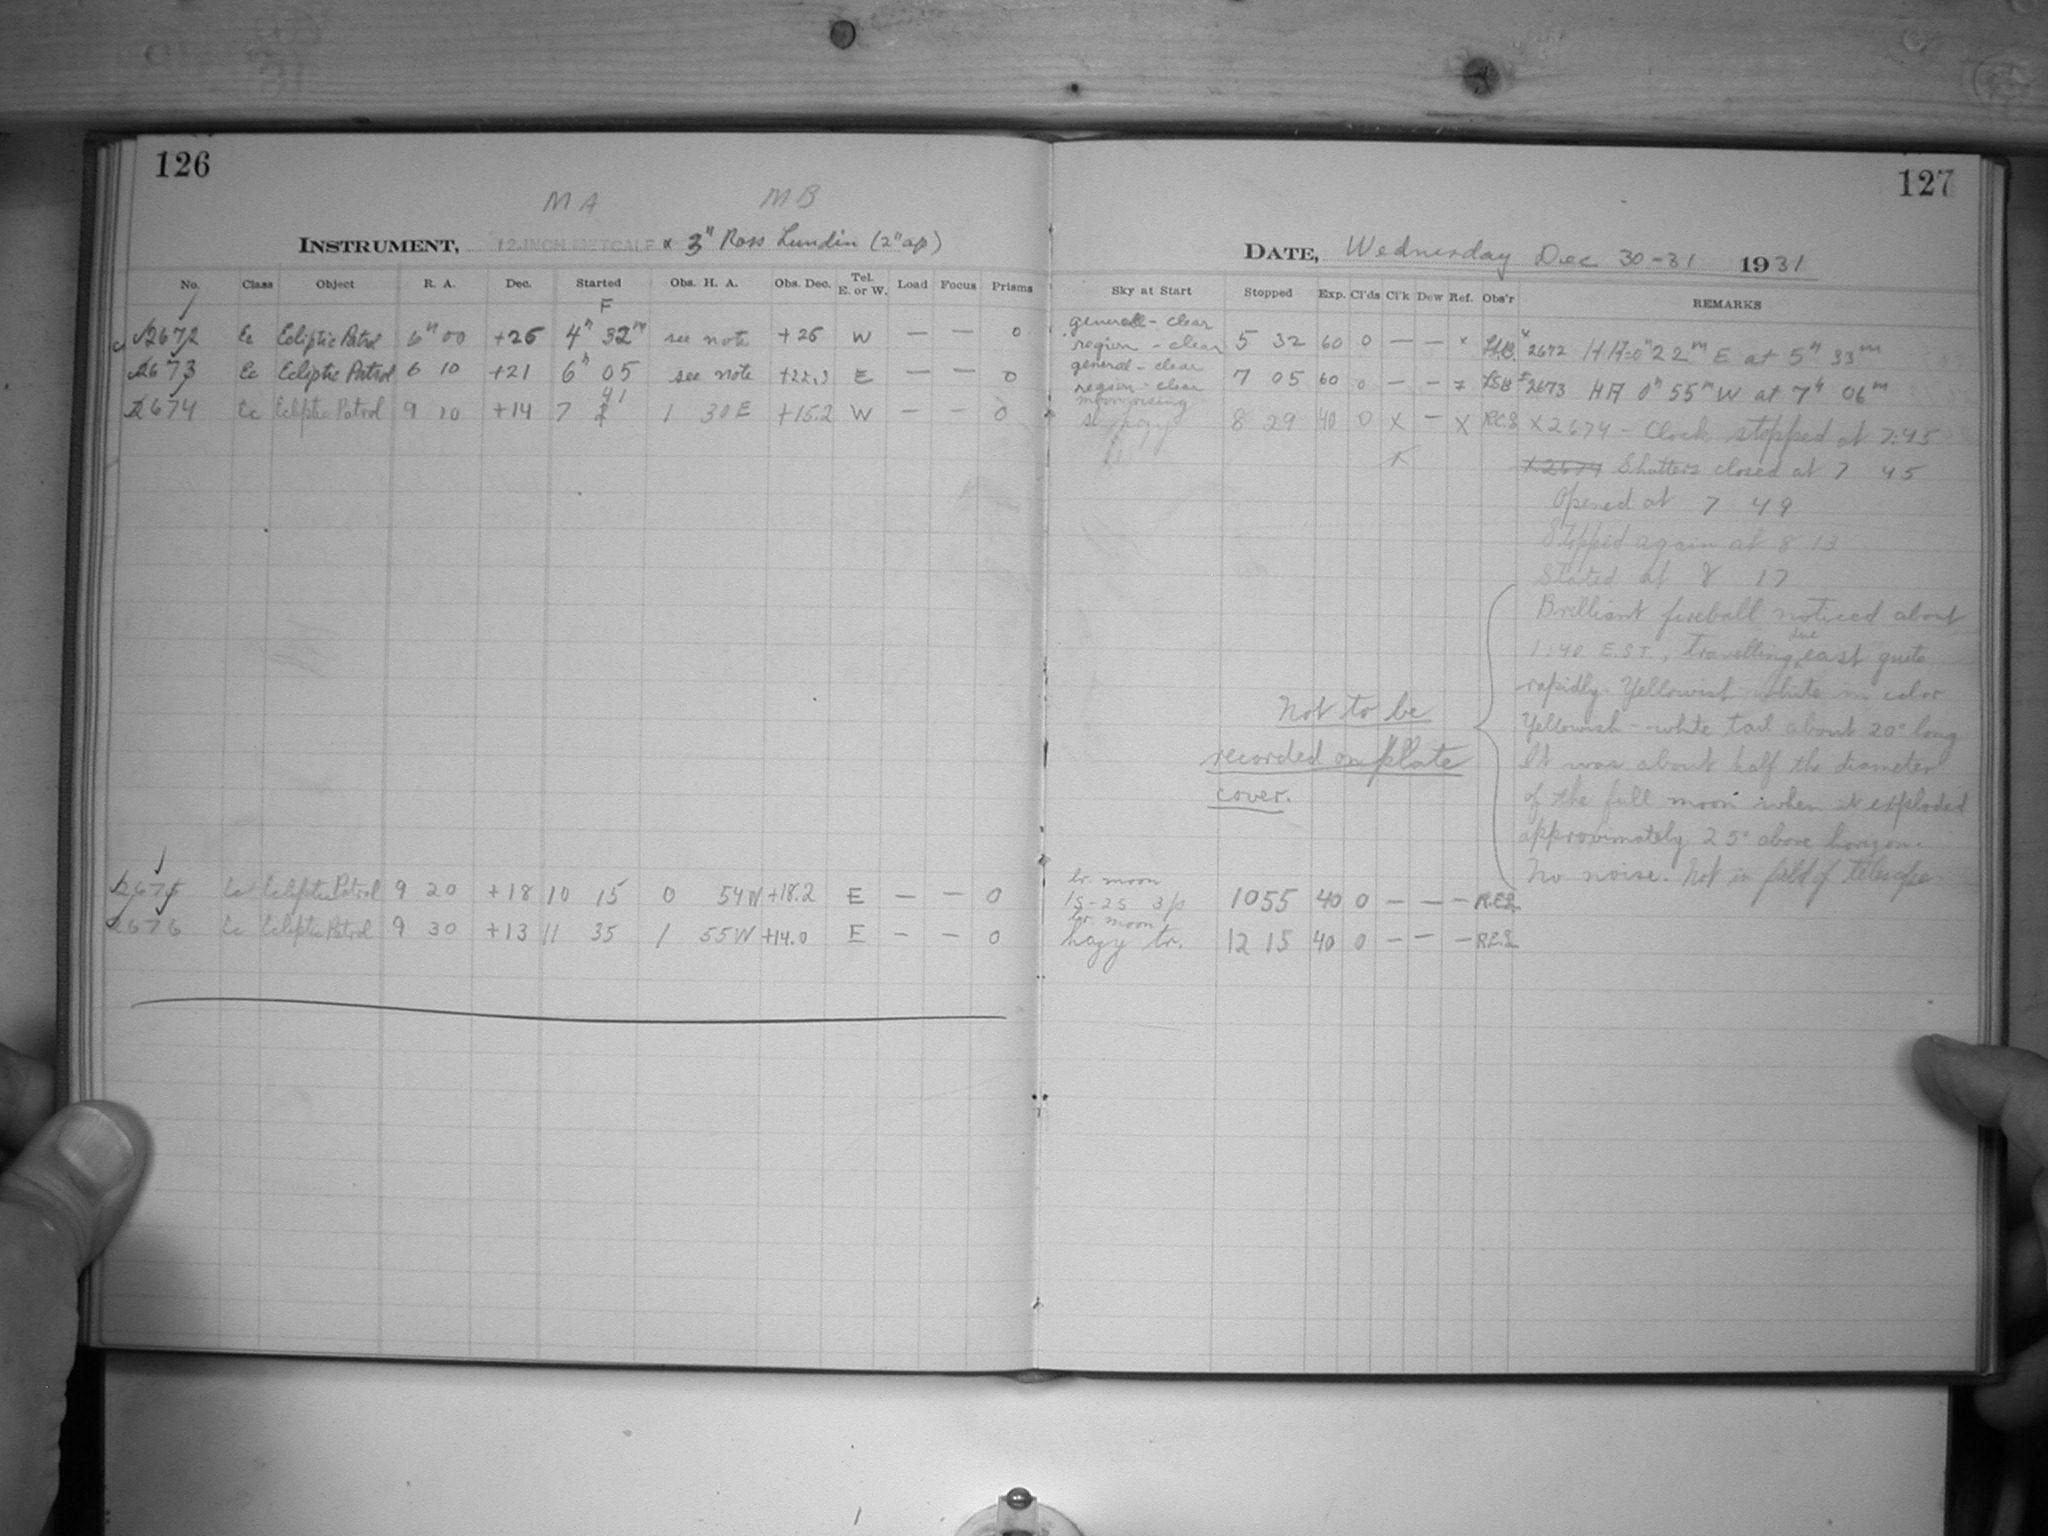 126
MA MB
INSTRUMENT, 12-INCH METCALF × 3" Ross Lundin (2" ap)
No. Class Object R. A. Dec. Started Obs. H. A. Obs. Dec. Tel. E. or W. Load Focus Prisms
F
2672 Ec Ecliptic Patrol 6h 00 +26 4h 32m see note +26 W — — 0
2673 Ec Ecliptic Patrol 6 10 +21 6h 05 see note +22.3 E — — 0
2674 Ec Ecliptic Patrol 9 10 +14 7 41 1 30 E +15.2 W — — 0
2675 Ec Ecliptic Patrol 9 20 +18 10 15 0 54 W +18.2 E — — 0
2676 Ec Ecliptic Patrol 9 30 +13 11 35 1 55 W +14.0 E — — 0
127
DATE, Wednesday Dec 30-31 1931
Sky at Start Stopped Exp. Cl'ds Cl'k Dew Ref. Obs'r REMARKS
general - clear
region - clear 5 32 60 0 — — x x 2672 HA=0h 22m E at 5h 33m
general - clear
region - clear 7 05 60 0 — — LSB 2673 HA 0h 55m W at 7h 06m
moon rising
sl. hazy 8 29 40 0 X — X R.C.S X 2674 - Clock stopped at 7:45
X X2674 Shutters closed at 7 45
Opened at 7 49
Stopped again at 8 13
Started at 8 17
Brilliant fireball noticed about
1:40 E.S.T., travelling due east quite
rapidly. Yellowish white in color
Yellowish - white tail about 20° long
It was about half the diameter
of the full moon when it exploded
approximately 25° above horizon.
No noise. Not in field of telescope.
Not to be
recorded on plate
cover.
br. moon
1s-2s 3p 10 55 40 0 — — —
br. moon
hazy tr. 12 15 40 0 — — —